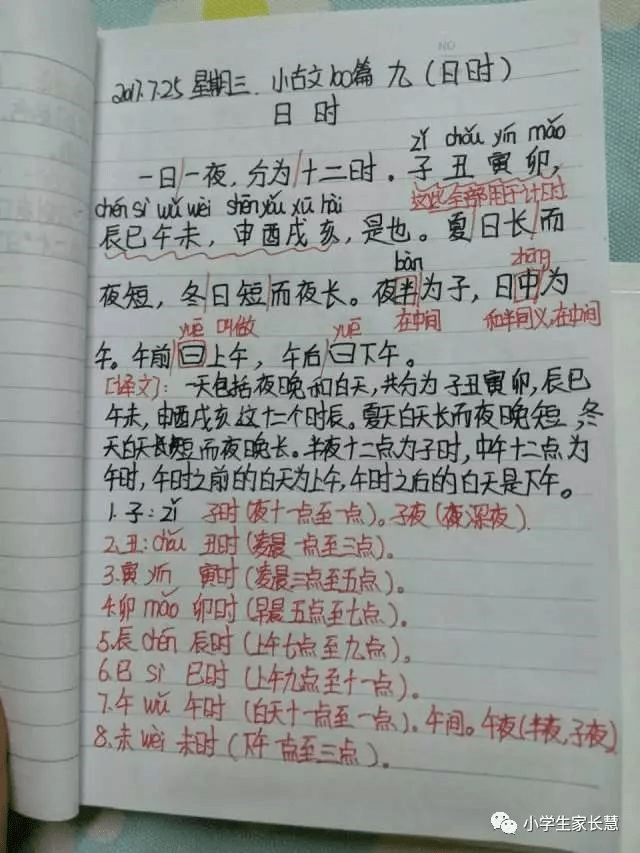 NO
2017.7.25 星期三. 小古文100篇 九（日时）
日 时
zǐ chǒu yín mǎo
一日/一夜，分为/十二时．子丑寅卯，
chén sì wǔ wèi shēn yǒu xū hài 这些全部用于计时
辰巳午未，申酉戌亥，是也。夏/日长/而
bàn zhōng
夜短，冬/日短/而夜长。夜半为子，日中为
yuē 叫做 yuē 在中间 和半同义，在中间
午。午前曰上午，午后曰下午。
[译文]：一天包括夜晚和白天，共分为子丑寅卯，辰巳
午未，申酉戌亥这十二个时辰。夏天白天长而夜晚短，冬
天白天短而夜晚长。半夜十二点为子时，中午十二点为
午时，午时之前的白天为上午，午时之后的白天是下午。
1.子：zǐ 子时（夜十一点至一点）。子夜（夜深夜）.
2.丑：chǒu 丑时（凌晨一点至三点）。
3.寅 yín 寅时（凌晨三点至五点）。
4.卯 mǎo 卯时（早晨五点至七点）。
5.辰 chén 辰时（上午七点至九点）。
6.巳 sì 巳时（上午九点至十一点）。
7.午 wǔ 午时（白天十一点至一点）．午间。午夜（半夜，子夜）
8.未 wèi 未时（下午一点至三点）．
小学生家长慧